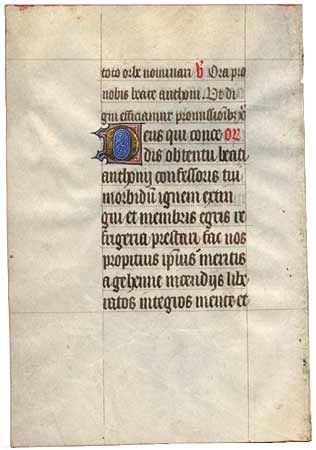 toto orbe nominari ℣ Ora pro
nobis beate anthoni. Ut di
gni efficiamur promissionibus x
Deus qui conce or
dis obtentu beati
anthonij confessoris tui
morbidum ignem extin
gui et membris egris re
frigeria prestari fac nos
propitius ipsius meritis
a gehenne incendijs libe
ratos integros mente et